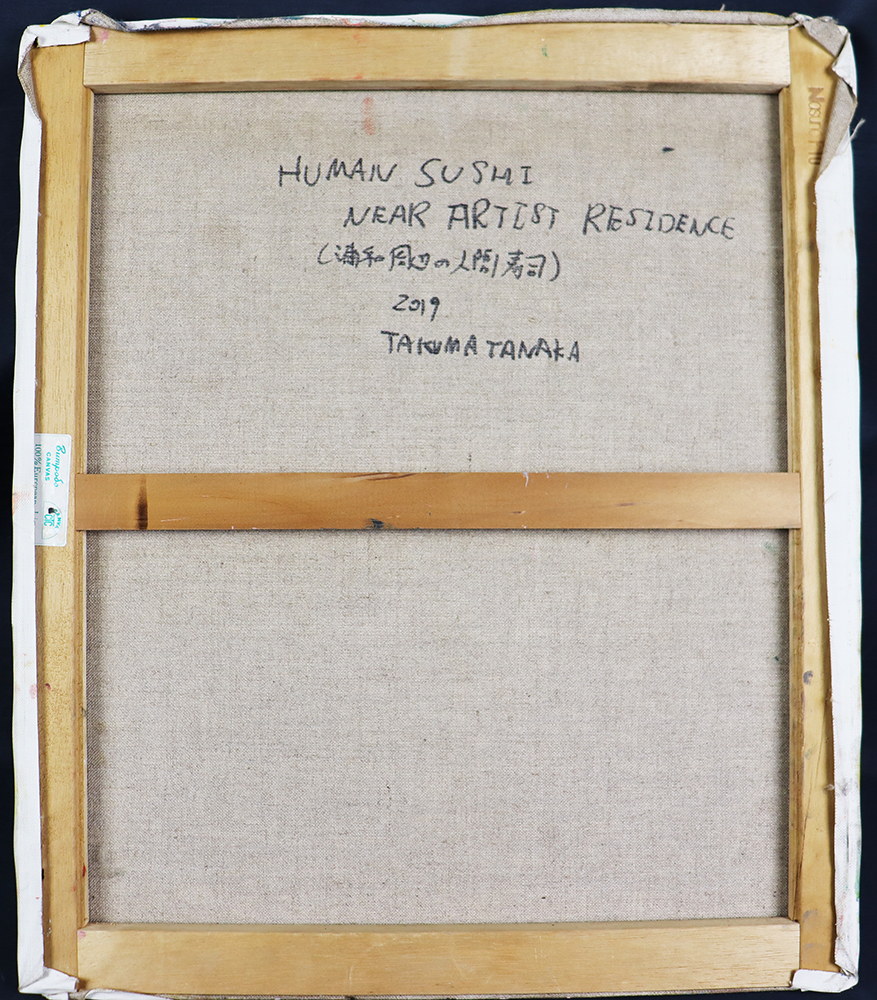 HUMAN SUSHI
NEAR ARTIST RESIDENCE
(浦和周辺の人間寿司)
2019
TAKUMA TANAKA
CANVAS
100% European